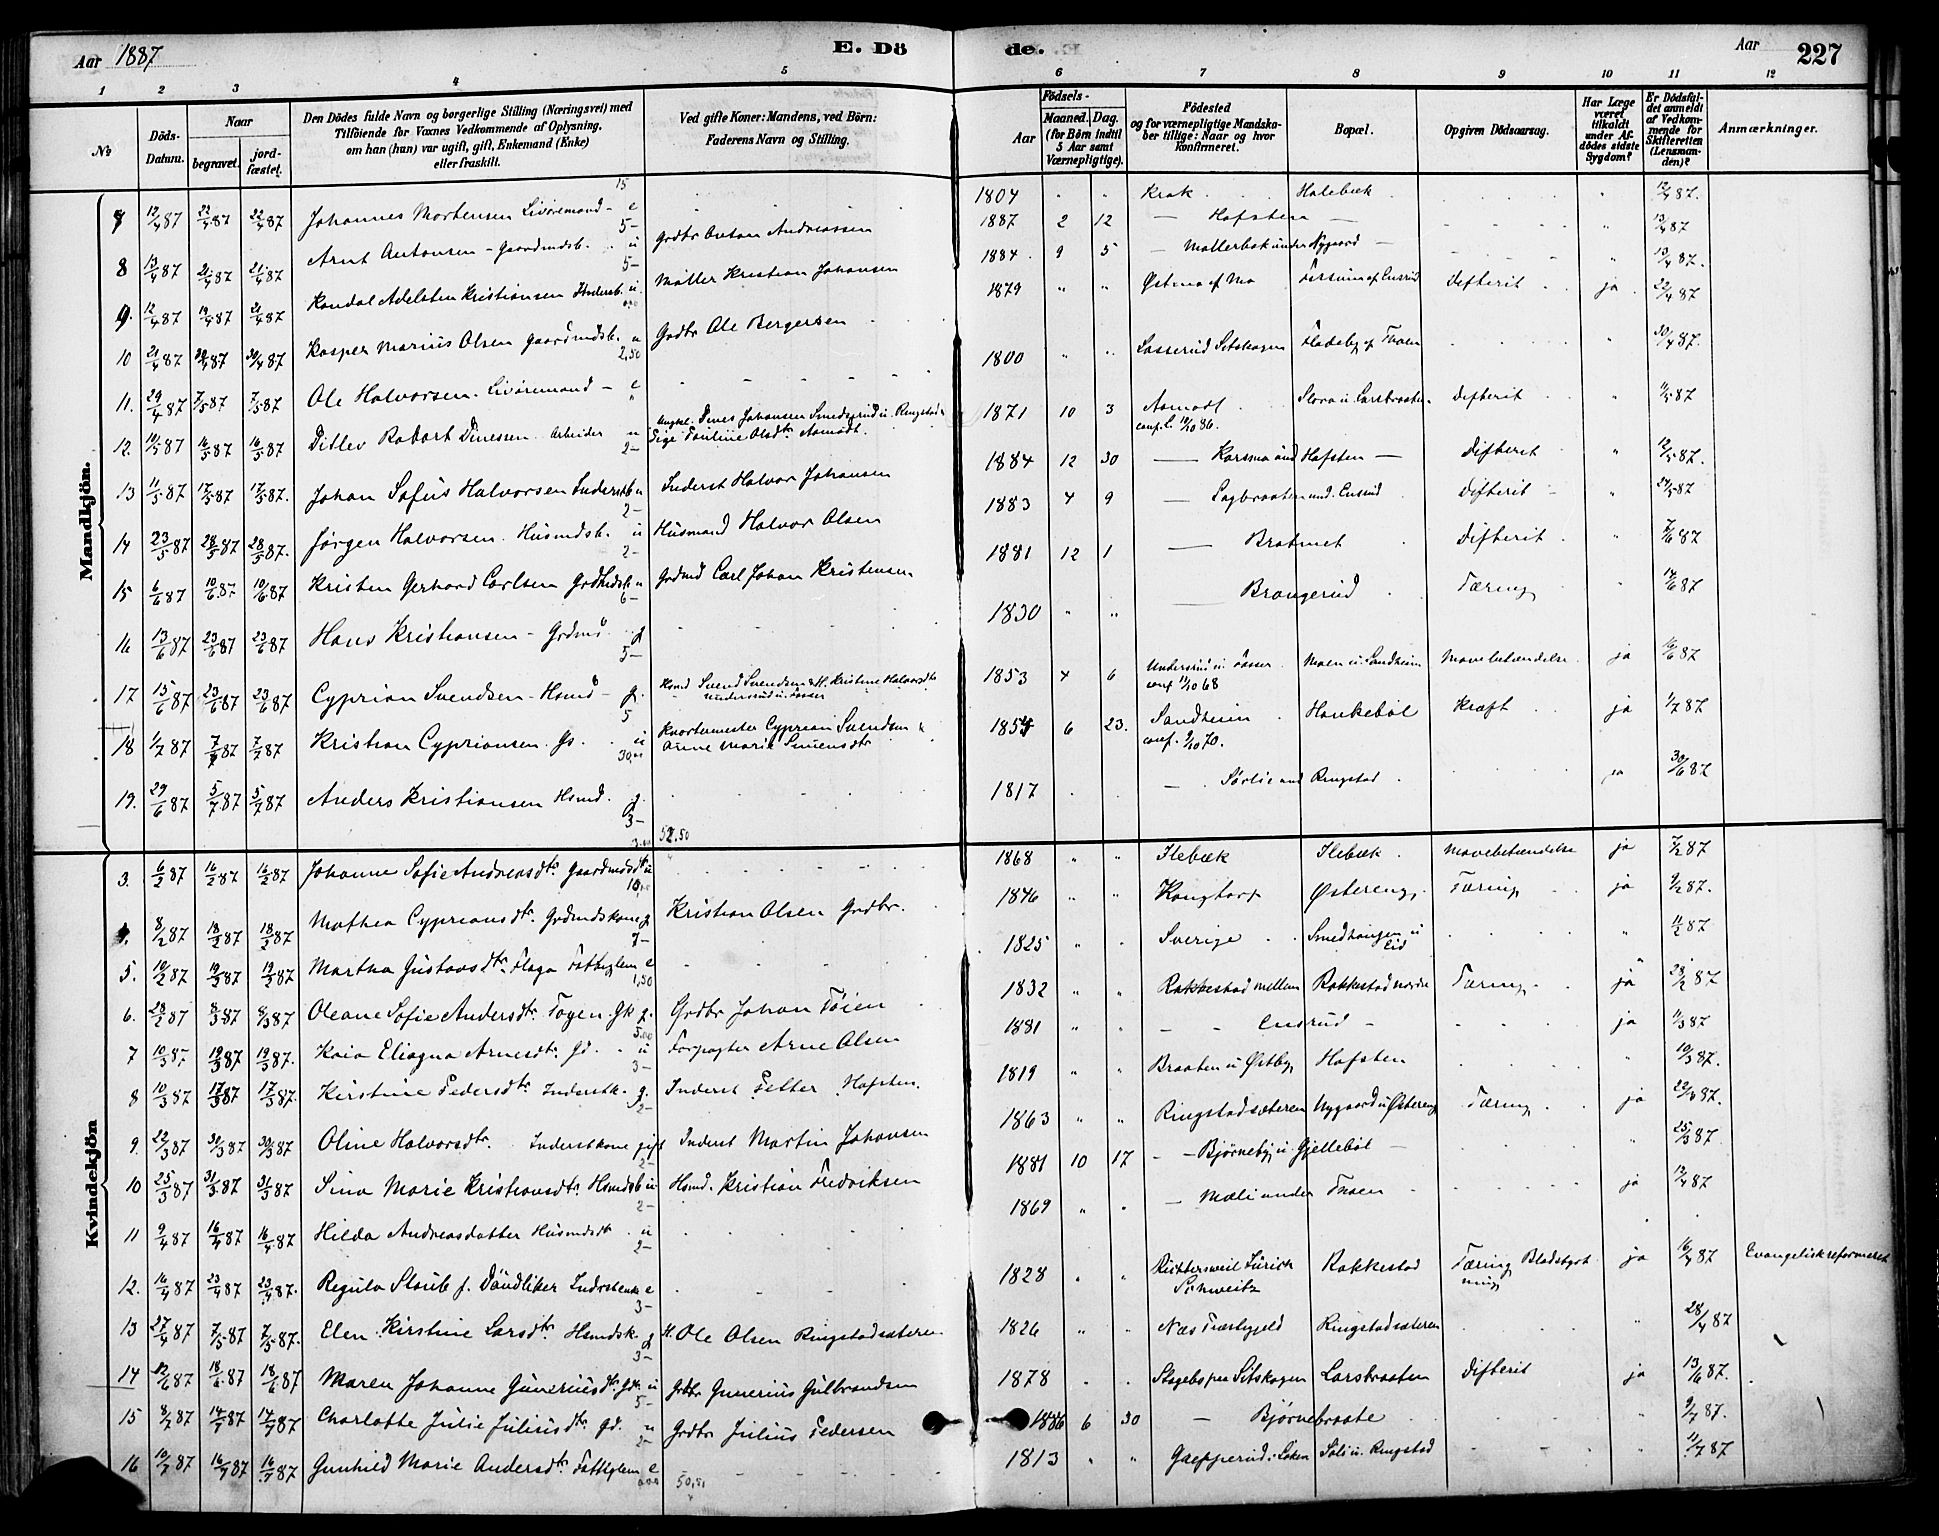 Aar 1887 E. Dö de. Aar 227
1 2 3 4 5 6 7 8 9 10 11 12
No
Döds-Datum.
Naar
begravet.
jord-fæstet.
Den Dödes fulde Navn og borgerlige Stilling (Næringsvei) med
Tilföiende for Voxnes Vedkommende af Oplysning,
om han (hun) var ugift, gift, Enkemand (Enke)
eller fraskilt.
Ved gifte Koner: Mandens, ved Börn:
Faderens Navn og Stilling.
Födsels-
Aar
Maaned. Dag.
(for Börn indtil
5 Aar samt
Værnepligtige).
Födested
og for værnepligtige Mandska-
ber tillige: Naar og hvor
konfirmeret.
Bopæl.
Opgiven Dödsaarsag.
Har Læge
været
tilkaldt
under Af-
dödes sidste
Sygdom?
Er Dödsfal-
det anmeldt
af Vedkom-
mende for
Skifteretten
(Lensman-
den)?
Anmærkninger.
Mandkjön.
7 12/4 87 22/4 87 22/4 87 Johannes Mortensen Livöremand - e 1804 Krok Holebæk 12/4 87.
8 13/4 87 21/4 87 21/4 87 Arnt Antonsen - Gaardmdsb. u Grdbr Anton Andreassen 1887 2 12 — Hofsten — 13/4 87
9. 12/4 87 19/4 87 21/4 87 Adelsten Kristiansen u Møller Kristian Johansen 1884 9 5 — Møllerbak under Nygaard — 13/4 87.
10 21/4 87 30/4 87 30/4 87 Kasper Marius Olsen Gaardmdsb. u Grdbr Ole Bergersen 1879 Østmo af Mo Difterit ja 22/4 87
11. 29/4 87 7/5 87 7/5 87 Ole Halvorsen. Livöremand - e 1800 Setskogen 30/4 87.
12. 10/5 87 16/5 87 16/5 87 Ditlev Robart Dinessen. Arbeider u Ungkl. Dines Johansen u. Ringstad & Pige Pauline Olsdtr Aamodt. 1871 10 3 Aamodt conf. Difterit 11/5 87
13 11/5 87 17/5 87 17/5 87. Johan Sofus Halvorsen Inderstb u Inderst Halvor Johansen 1884 12 30 — Korsmo und Hofsten — Difterit 12/5 87.
14 23/5 87 28/5 87 28/5 87. Jörgen Halvorsen. Husmdsb. u Husmand Halvor Olsen 1883 4 9 — Sagbraaten und. Ensrud Difterit 24/5 87
15 6/6 87 10/6 87 10/6 87 Kristen Gerhard Carlsen u Grdmd Carl Johan Kristensen 1881 12 1 — Bratmet Difterit 7/6 87
16 13/6 87 23/6 87 23/6 87 Hans Kristiansen - Grdmd g 1830 — Brangerud Tæring 14/6 87
17 15/6 87 23/6 87 23/6 87 Cyprian Svendsen - Hsmd - g. Hsmd Svend Svendsen & H. Kristine Halvorsdtr Underrud u. Fosser 1853 4 6 Underrud u. Fosser conf 11/10 68 Moen u. Sandheim Mavebetændelse ja 16/6 87
18 1/7 87 7/7 87 7/7 87 Kristian Cypriansen. Gs. u Kvartermester Cyprian Svendsen & Anne Marie Simensdtr 1854 6 23. Sandheim conf. 9/10 70. Haukebøl Kræft ja 1/7 87
19. 29/6 87 5/7 87 5/7 87 Anders Kristiansen Hsmd. g. 1817 — Sörlie und Ringstad ja 30/6 87
52.50
Kvindekjön
3. 6/2 87 16/2 87 16/2 87 Johanne Sofie Andreasdtr. Gaardmdsdtr u 1868 Ilebæk Ilebæk Mavebetændelse ja 7/2 87
4. 8/2 87 18/2 87 18/2 87 Mathea Cypriansdtr. Grdmdskone g Kristian Olsen Grdbr. 1846 Kongtorp Østereng. Tæring ja 9/2 87.
5. 10/2 87 19/2 87 19/2 87 Martha Gustavsdtr Flaga Fattiglem e 1825 Sverige Smedhaugen u Eid 11/2 87
6. 28/2 87 8/3 87 8/3 87 Oleane Sofie Andersdtr. Toyen. Gk g. Grdbr Johan Töien 1832 Rakkestad mellem Rakkestad nordre Tæring ja 28/2 87
7 10/3 87 19/3 87 19/3 87. Kaia Eliagna Arnesdtr. Gd. u Forpagter Arne Olsen 1881 — Ensrud — ja 11/3 87
8 10/3 87 17/3 87 17/3 87. Kirstine Pedersdtr Inderstk. g. Inderst Petter Hofsten. 1819 Braaten u Østby Hofsten 10/3 87.
9. 22/3 87 30/3 87 30/3 87 Oline Halvorsdtr. Inderstkone gift Inderst Martin Johansen 1863 Ringstadsæteren Nygaard u Østereng Tæring ja 22/3 87.
10 25/3 87 31/3 87 31/3 87 Sina Marie Kristiansdtr. Hsmdsb u Hsmd. Kristian Fredriksen 1881 10 17 — Bjørneby u. Gjellebøl — 25/3 87.
11 9/4 87 16/4 87 16/4 87 Hilda Andreasdatter Husmdsdtr u 1869 — Mæli under Thoen ja 12/4 87
12. 16/4 87 23/4 87 23/4 87. Regula Staub f. Dändliker Indrstenke e 1828 Richterswil Zürich Schweitz Rakkestad Tæring Blodstyrtning ja 16/4 87 Evangeliskreformeret
13 27/4 87 7/5 87 7/5 87. Elen Kirstine Larsdtr Hsmdsk. g H. Ole Olsen Ringstadsæteren 1826 Næs Præstegjeld Ringstadsæteren 28/4 87
14 12/6 87 18/6 87 18/6 87 Maren Johanne Gunneriusdtr. Gdtr u Grdbr Gunerius Gulbrandsen 1878 Setskogen Larsbraaten Difterit ja 13/6 87.
15 8/7 87 14/7 87 14/7 87 Charlotte Julie Juliusdtr Gd. u Grdbr Julius Pedersen 1886 6 30 — Bjørnebraate 9/7 87.
16 10/7 87 16/7 87 16/7 87 Gunhild Marie Andersdtr Fattiglem e 1813 Soli u. Ringstad 11/7 87